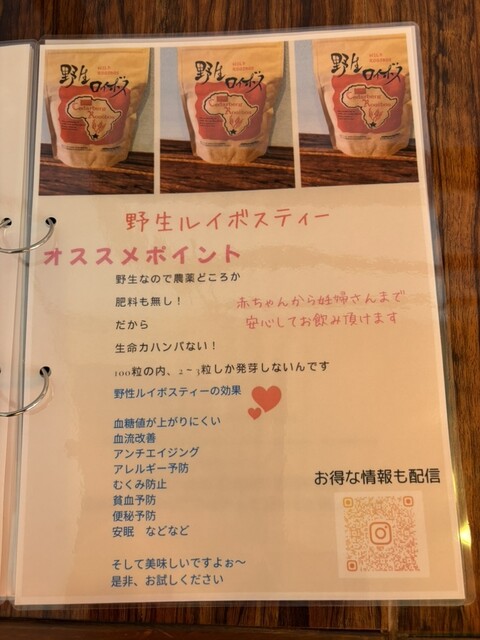 野生
ロイボス
WILD ROOIBOS
野生
ロイボス
WILD ROOIBOS
野生
ロイボス
WILD ROOIBOS
野生ルイボスティー
オススメポイント
野生なので農薬どころか
肥料も無し！
だから
生命力ハンパない！
100粒の内、2~3粒しか発芽しないんです
赤ちゃんから妊婦さんまで
安心してお飲み頂けます
野性ルイボスティーの効果
血糖値が上がりにくい
血流改善
アンチエイジング
アレルギー予防
むくみ防止
貧血予防
便秘予防
安眠 などなど
そして美味しいですよぉ〜
是非、お試しください
お得な情報も配信